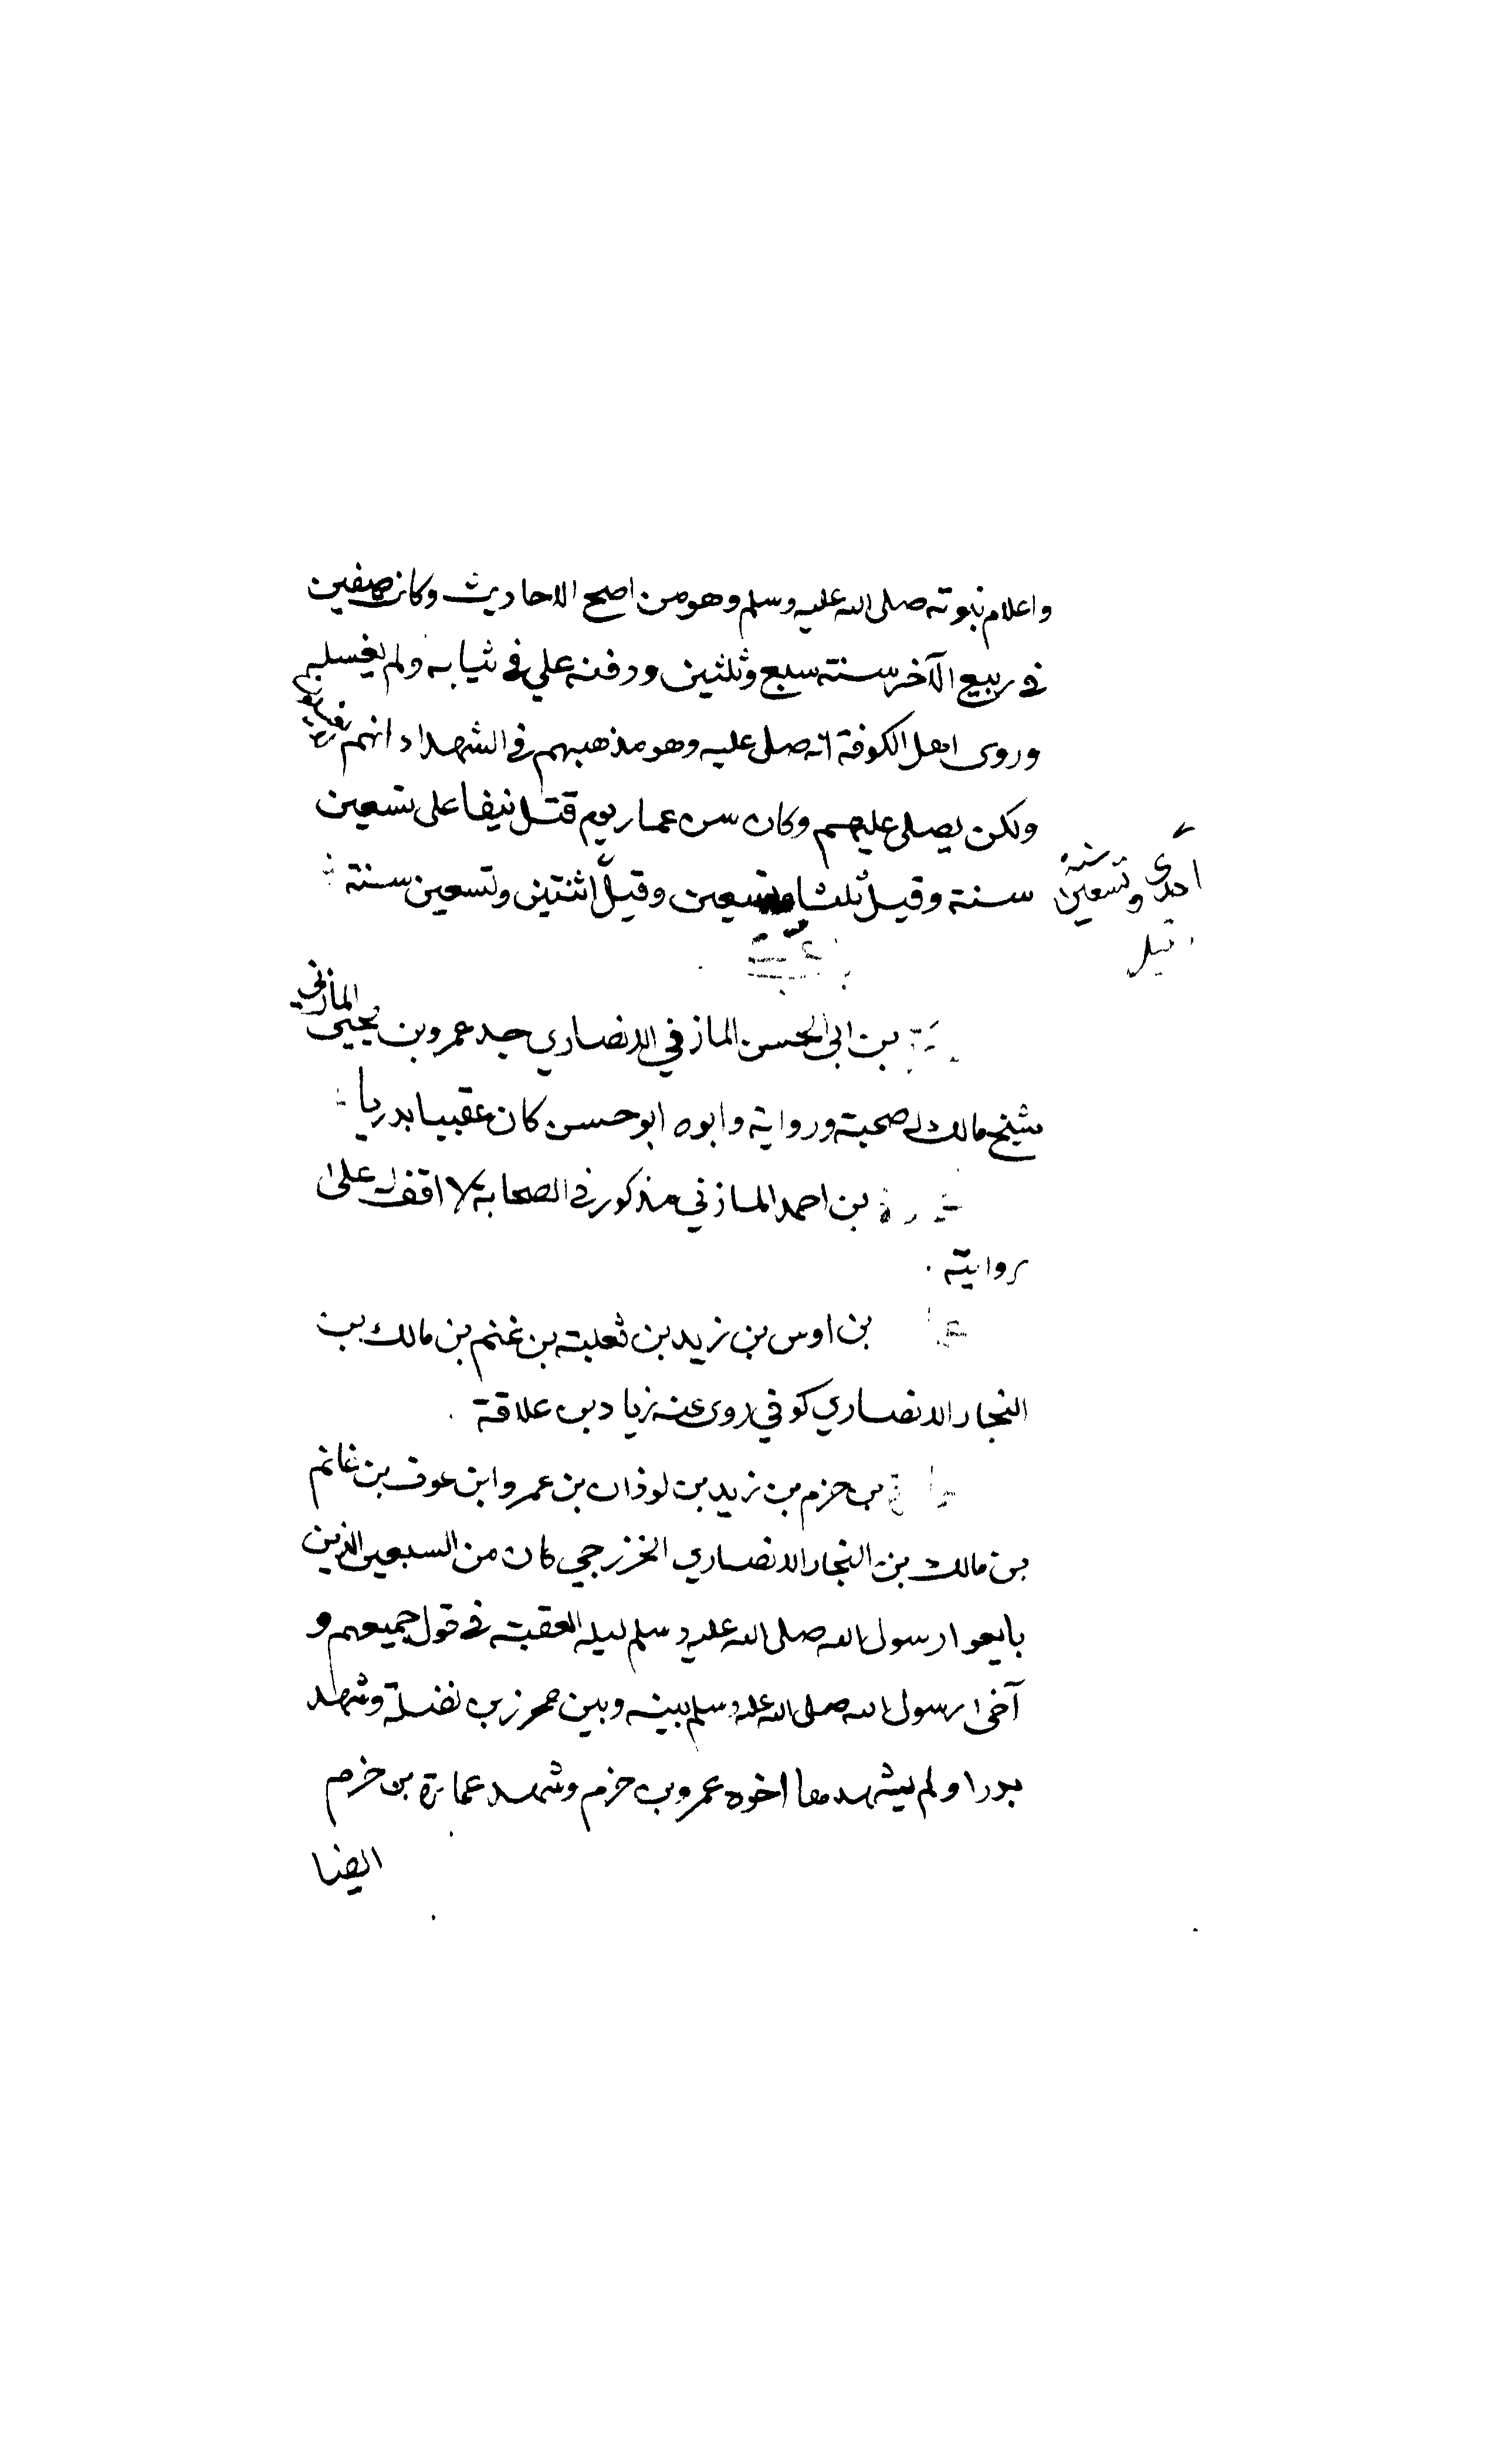 واعلام نبوته صلى الله عليه وسلم وهو من اصح الاحاديث وكانت صفين
في ربيع الآخر سنة سبع وثلثين ودفنه علي في ثيابه ولم يغسله
وروى اهل الكوفة انه صلى عليه وهو مذهبهم في الشهداء انهم
ولكن يصلى عليهم وكان سن عمار يوم قتل نيفا على تسعين
سنة وقيل ثلثا وتسعين وقيل اثنتين وتسعين سنة
احدى وتسعين سنة
وقيل
بن ابى الحسن المازني الانصاري جد عمرو بن يحيى المازني
شيخ مالك له صحبة ورواية وابوه ابو حسن كان عقبيا بدريا
بن احمر المازني مذكور في الصحابة لا اقف له على
رواية
بن اوس بن زيد بن ثعلبة بن غنم بن مالك بن
النجار الانصاري كوفي روى عنه زياد بن علاقة
بن حزم بن زيد بن لوذان بن عمرو ابن عوف بن غانم
بن مالك بن النجار الانصاري الخزرجي كان من السبعين الذين
بايعوا رسول الله صلى الله عليه وسلم ليلة العقبة في قول جميعهم و
آخى رسول الله صلى الله عليه وسلم بينه وبين محرز بن نضلة وشهد
بدرا ولم يشهدها اخوه عمرو بن حزم وشهد عمارة بن حزم
ايضا